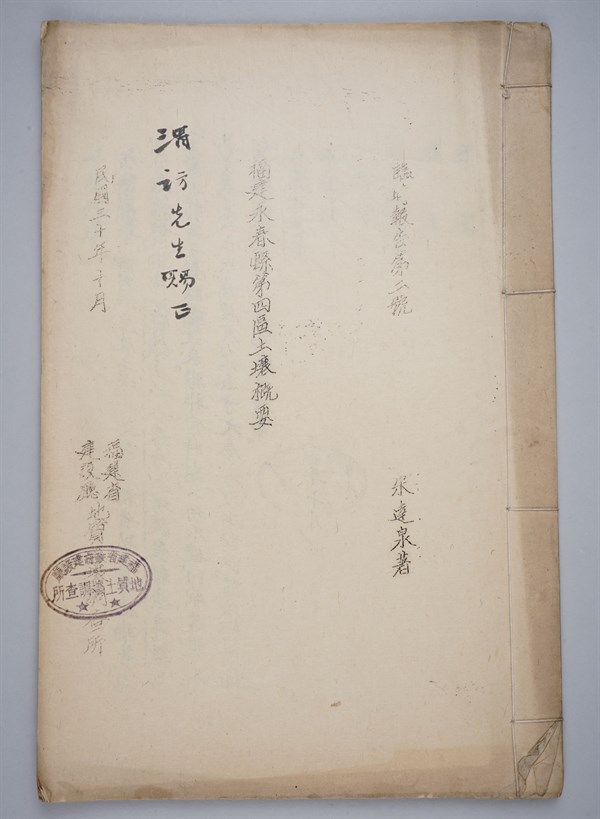 臨時報告第二號
宋達泉著
福建永春縣第四區土壤概要
渭訪先生賜正
民國三十年十月
福建省
建設廳地質土壤調查所
福建省政府建設廳
地質土壤調查所